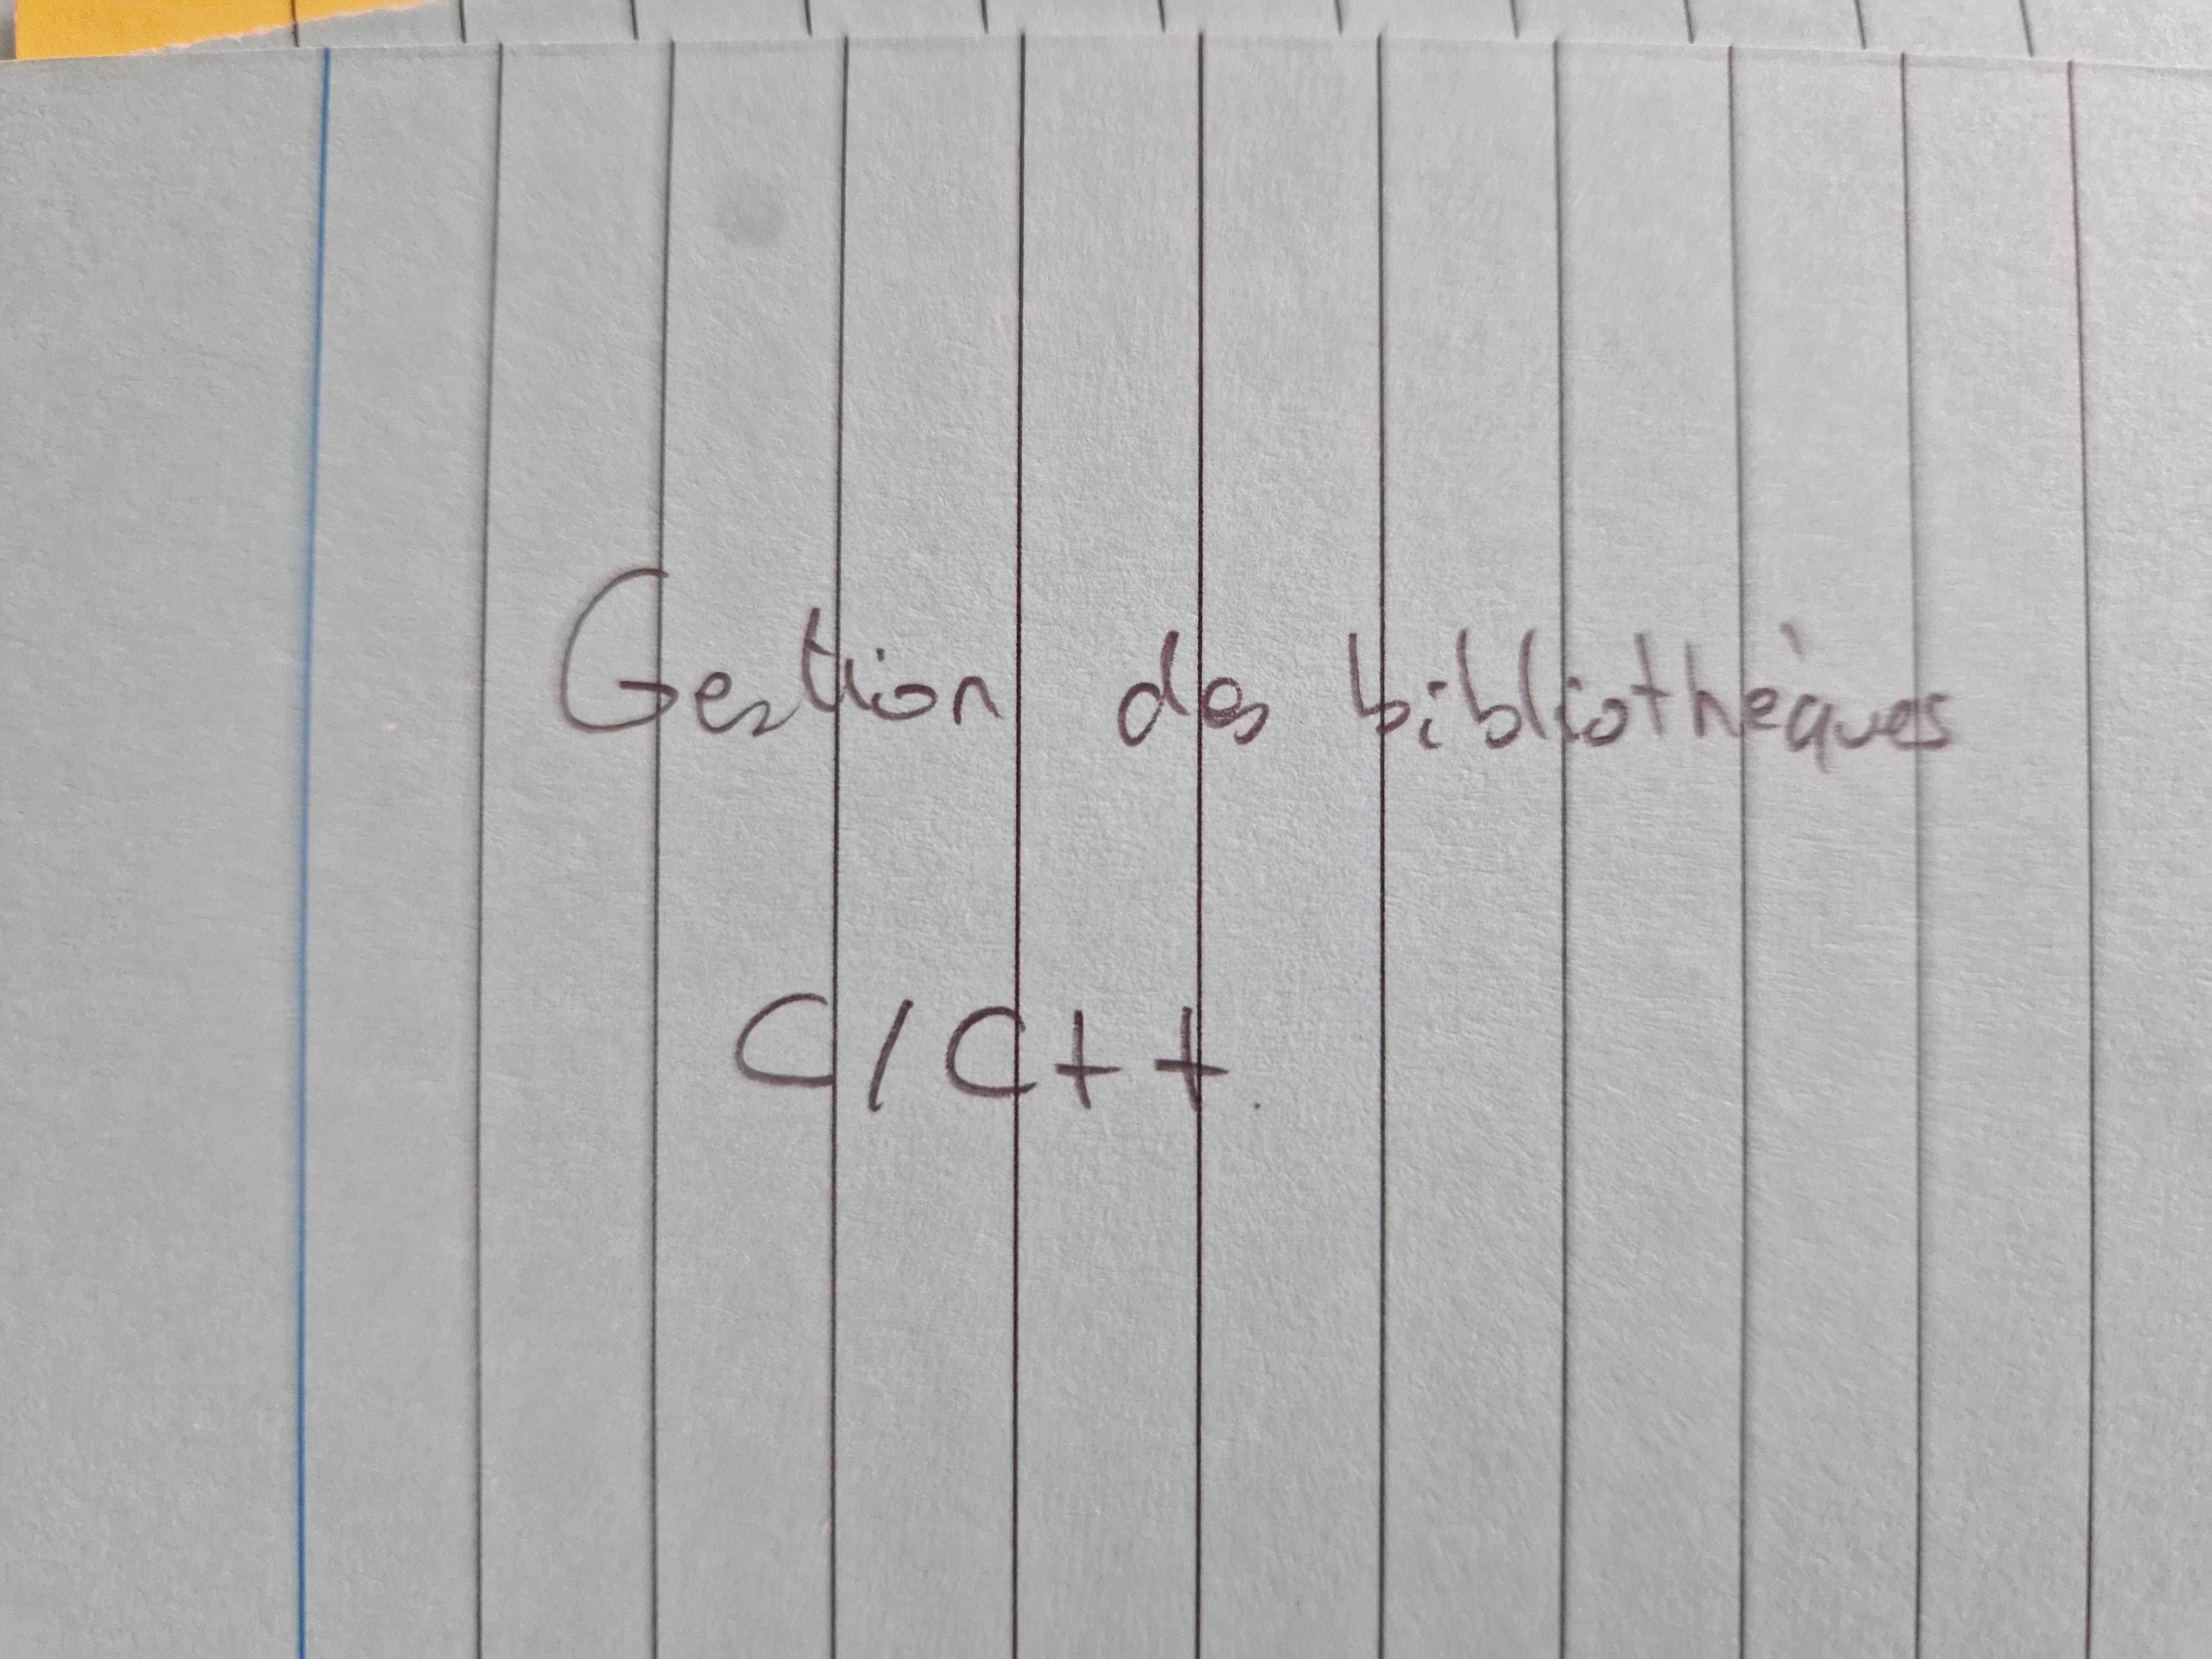 Gestion des bibliothèques
C/C++.